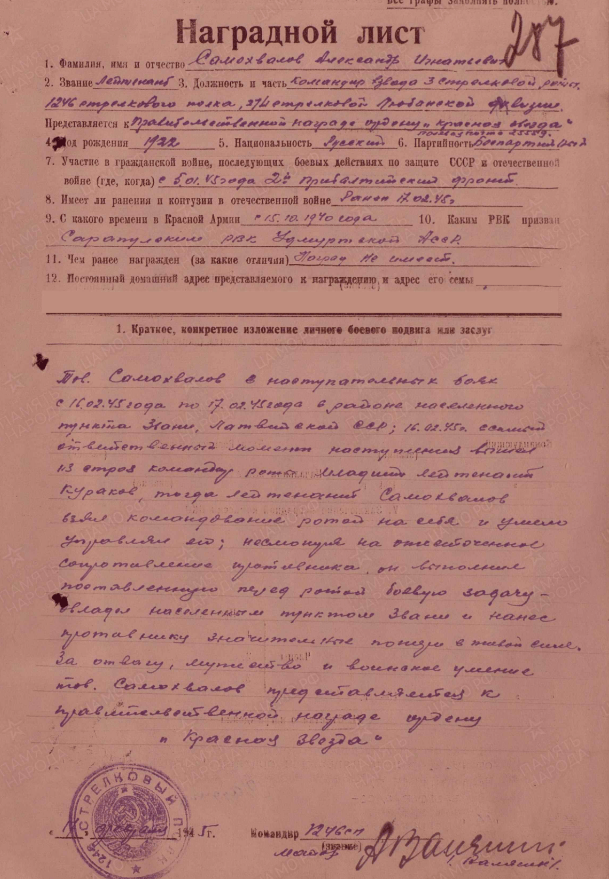 Все графы заполнять полностью.
287
Наградной лист
1. Фамилия, имя и отчество Самохвалов Александр Игнатьевич
2. Звание Лейтенант 3. Должность и часть Командир взвода 3 стрелковой роты
1246 стрелкового полка, 374 стрелковой Любанской дивизии.
Представляется к Правительственной награде ордену "Красная звезда"
4. Год рождения 1922 5. Национальность Русский 6. Партийность Беспартийный
7. Участие в гражданской войне, последующих боевых действиях по защите СССР и отечественной
войне (где, когда) с 5.01.45 года 2й Прибалтийский фронт
8. Имеет ли ранения и контузии в отечественной войне Ранен 17.02.45г
9. С какого времени в Красной Армии с 15.10.1940 года 10. Каким РВК призван
Сарапулским РВК Удмуртской АССР.
11. Чем ранее награжден (за какие отличия) Наград не имеет.
12. Постоянный домашний адрес представляемого к награждению и адрес его семьи
1. Краткое, конкретное изложение личного боевого подвига или заслуг
Тов. Самохвалов в наступательных боях
с 16.02.45 года по 17.02.45 года в районе населенного
пункта Звани, Латвийской ССР; 16.02.45г.
ответственный момент наступления
из строя командир роты младший лейтенант
Кураков, тогда лейтенант Самохвалов
взял командование ротой на себя и умело
управлял ею; несмотря на ожесточенное
сопротивление противника, он выполнил
поставленную перед ротой боевую задачу –
овладел населенным пунктом Звани и нанес
противнику значительные потери в живой силе.
За отвагу, мужество и воинское умение
тов. Самохвалов представляется к
правительственной награде ордену
"Красная Звезда"
СТРЕЛКОВЫЙ ПОЛК 1246
февраля 1945г. Командир 1246 сп
майор (звание)